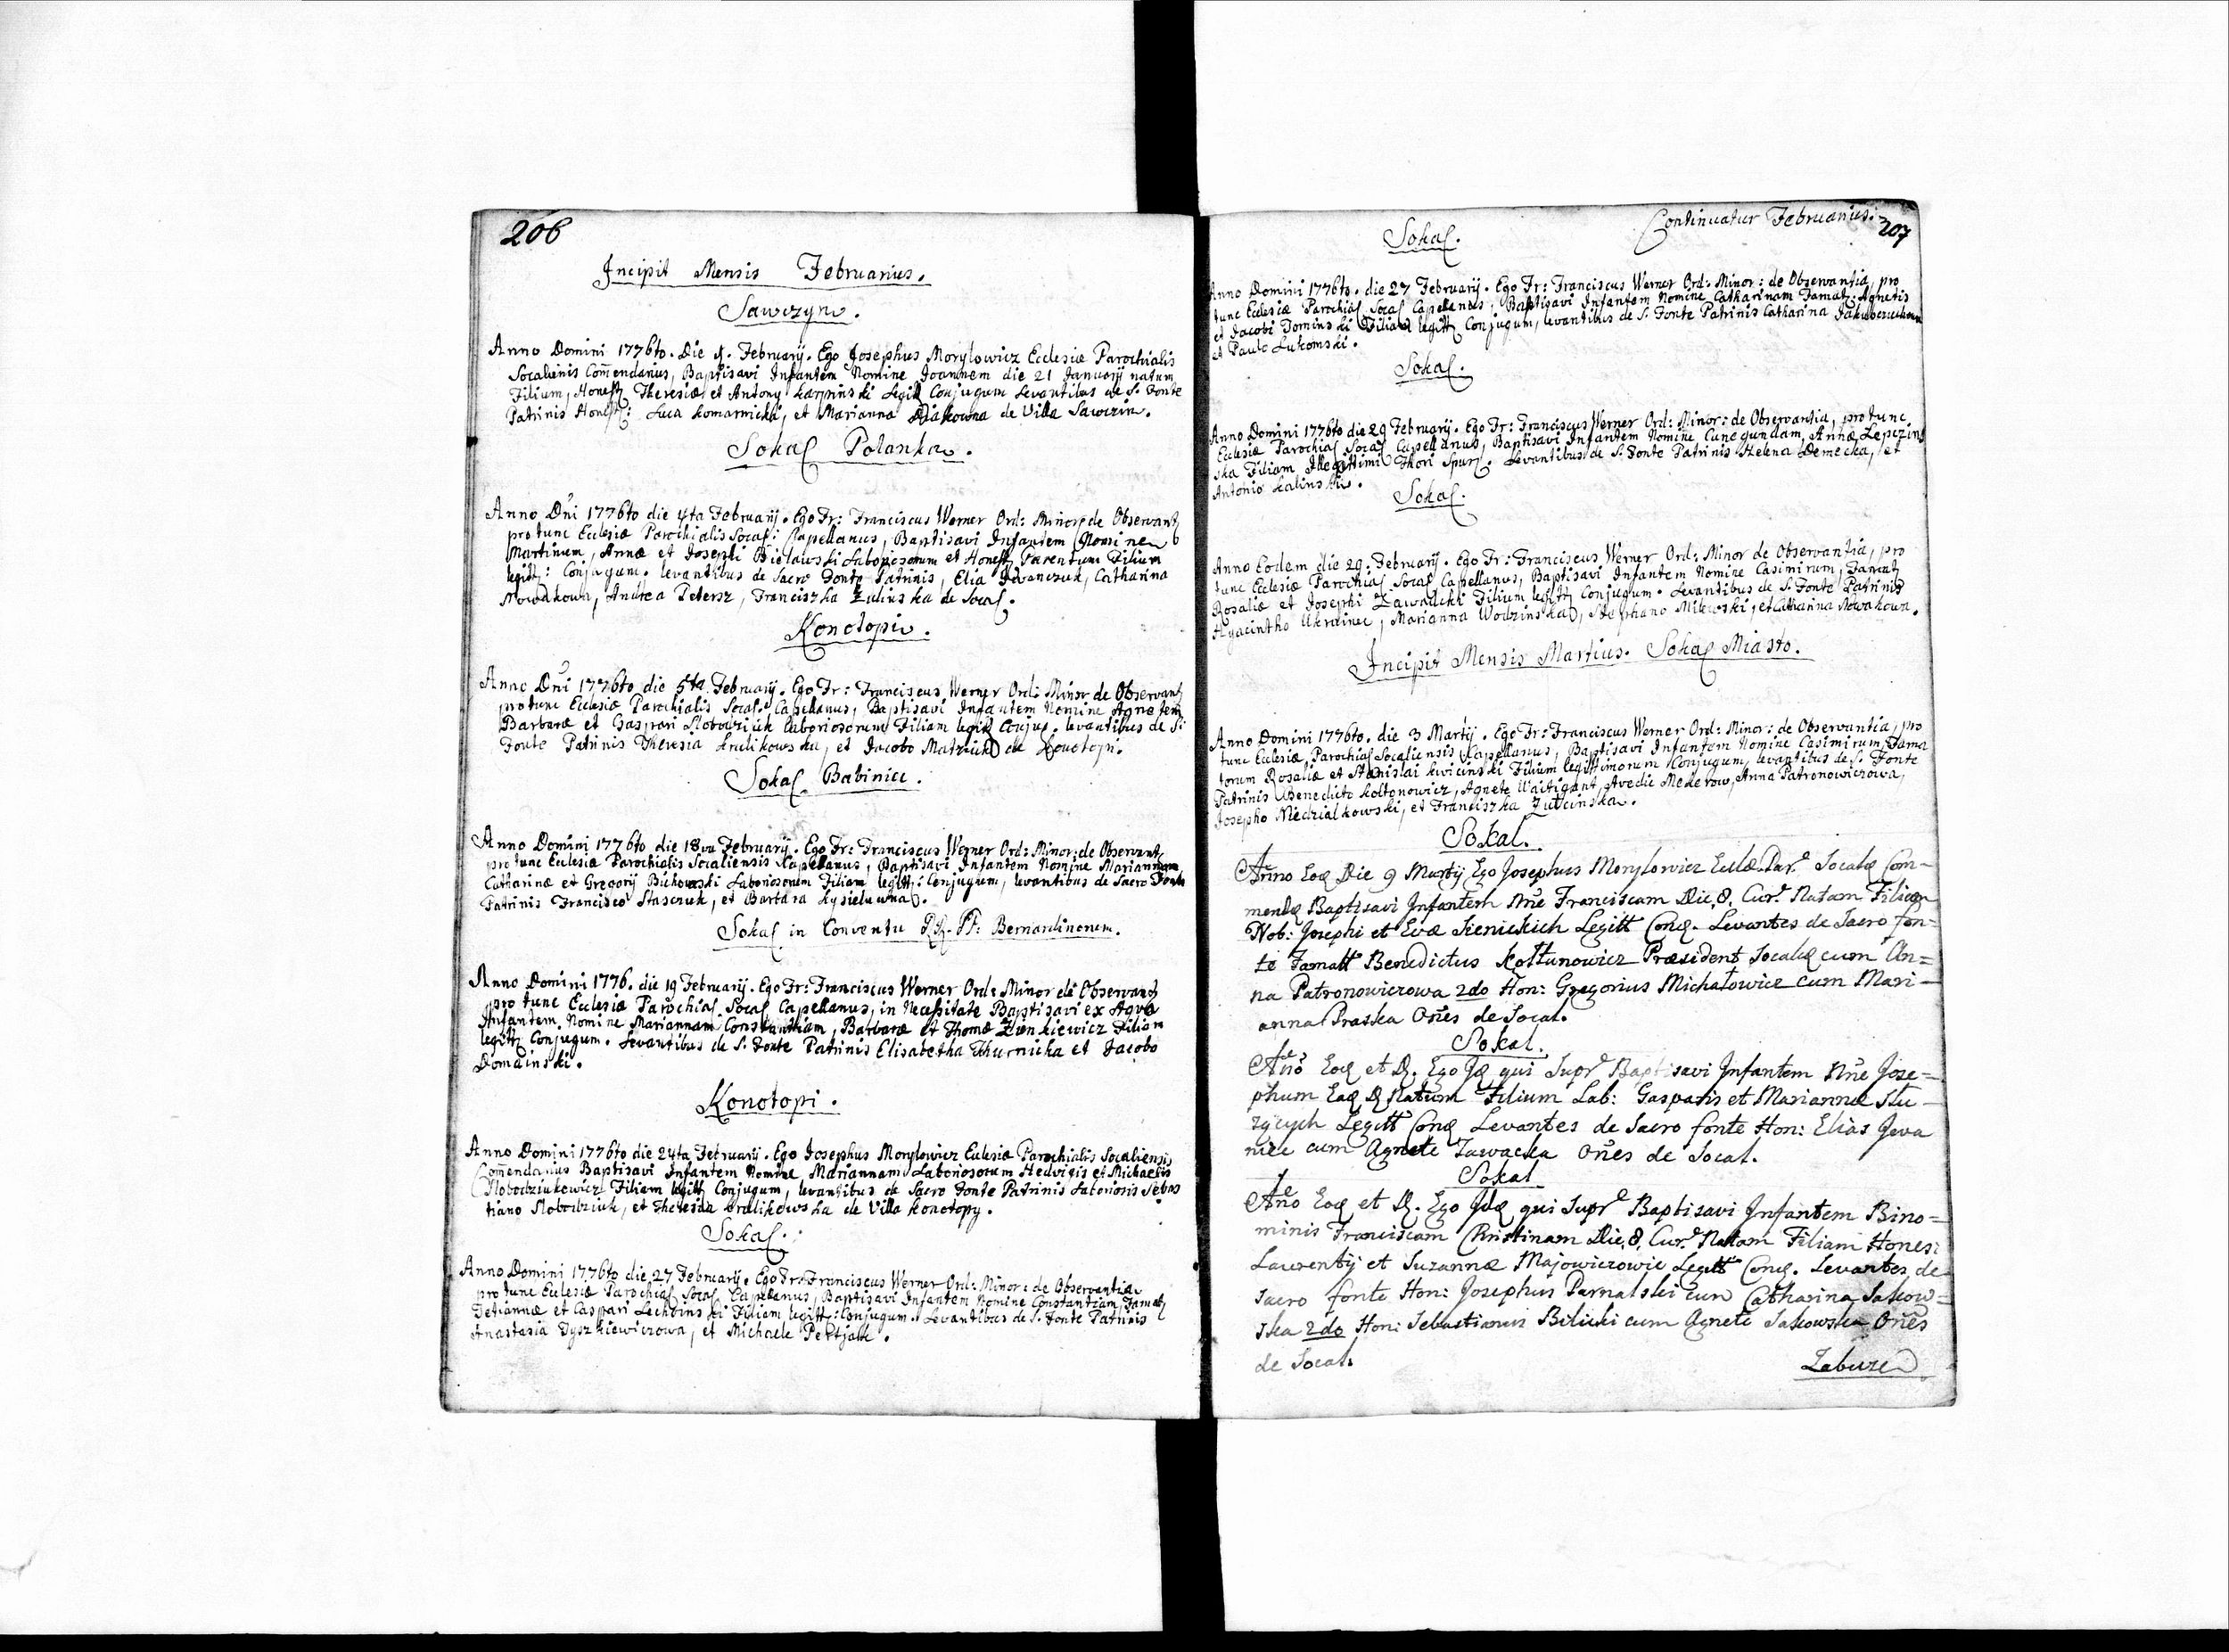 206
Incipit Mensis Februarius.
Sawczyn.
Anno Domini 1776to. Die 4. Februarij. Ego Josephus Morylowicz Ecclesiæ Parochialis
Socaliensis Com̃endarius, Baptisavi Infantem Nomine Joannem die 21 Januarij natum
Filium, Honest: Theresiæ et Antony Karpinski Legit Conjugum Levantibus de S. Fonte
Patrinis Honest: Luca Komarnicki, et Marianna de Villa Sawczin.
Sokal Polanka.
Anno Dñi 1776to die 4ta Februarij. Ego Fr: Franciscus Werner Ord: Minor de Observant
pro tunc Eclesiæ Parochialis Socal: Capellanus, Baptisavi Infantem Nomine
Martinum, Annæ et Josephi Bielawski Laboriosorum et Honest Parentum Filium
legitt: Conjugum. levantibus de Sacro Fonte Patrinis, Elia Iwanczuk, Catharina
Nowakowa, Andrea Petersz, Franciszka Zulinska de Socal.
Konotopie.
Anno Dñi 1776to die 5ta Februarij. Ego Fr: Franciscus Werner Ord: Minor de Observant
pro tunc Eclesiæ Parochialis Socal: Capellanus, Baptisavi Infantem Nomine Agnetem
Barbaræ et Gaspari Slobodziuk laboriosorum Filiam legitt Conjug. levantibus de S:
Fonte Patrinis Theresia Krulikowska, et Jacobo Matziuk de Konotopi.
Sokal Babiniec.
Anno Domini 1776to die 18va Februarij. Ego Fr: Franciscus Werner Ord: Minor: de Observant
pro tunc Eclesiæ Parochialis Socaliensis Capellanus, Baptisavi Infantem Nomine Mariannam
Catharinæ et Gregorij Bickowski Laboriosorum Filiam legitt: Conjugum, levantibus de Sacro Fonte
Patrinis Francisco Stasczuk, et Barbara Kysieluwna.
Sokal in Conventu PP: Bernardinorum.
Anno Domini 1776. die 19 Februarij. Ego Fr: Franciscus Werner Ord: Minor de Observant
pro tunc Ecclesiæ Parochial Socal Capellanus, in Necessitate Baptisavi ex Aqva
Infantem Nomine Mariannam Constantiam, Barbaræ et Thomæ Zienkiewicz Filiam
legitt Conjugum. Levantibus de S. Fonte Patrinis Elisabetha Thurnicka et Jacobo
Domainski.
Konotopi.
Anno Domini 1776to die 24ta Februarij. Ego Josephus Morylowicz Eclesiæ Parochialis Socaliensis
Com̃endarius Baptisavi Infantem Nomine Mariannam Laboriosorum Hedvigis et Michaelis
Slobodziukowicz Filiam legitt Conjugum, levantibus de Sacro Fonte Patrinis Laboriosis Sebas
tiano Slobodziuk, et Theresia Krulikowska de Villa Konotopy.
Sokal.
Anno Domini 1776to die 27 Februarij. Ego Fr: Franciscus Werner Ord: Minor: de Observantia
pro tunc Eclesiæ Parochial Socal Capellanus, Baptisavi Infantem Nomine Constantiam, Famat
Tetiannæ et Caspari Lechvinski Filiam legitt: Conjugum. Levantibus de S. Fonte Patrinis
Anastasia Tyszkiewiczowa, et Michaele Pettjak.
Continuatur Februarius. 207
Sokal.
Anno Domini 1776to. die 27 Februarij. Ego Fr: Franciscus Werner Ord: Minor: de Observantia, pro
tunc Eclesiæ Parochial Socal Capellanus: Baptisavi Infantem Nomine Catharinam Famat: Agnetis
et Jacobi Dominski Filiam legitt Conjugum, levantibus de S. Fonte Patrinis Catharina
et Paulo Lukomski.
Sokal.
Anno Domini 1776to die 29 Februarij. Ego Fr: Franciscus Werner Ord: Minor: de Observantia, pro tunc
Eclesiæ Parochial Socal Capellanus, Baptisavi Infantem Nomine Cunegundam, Annæ Lepczins
ka Filiam Illegittimi Thori Spur. Levantibus de S. Fonte Patrinis Helena Demecka, et
Antonio Kalinski.
Sokal.
Anno Eodem die 29. Februarij. Ego Fr: Franciscus Werner Ord: Minor de Observantia, pro
tunc Eclesiæ Parochial Socal Capellanus, Baptisavi Infantem Nomine Casimirum, Famat
Rosaliæ et Josephi Zawadcki Filium legitt Conjugum. Levantibus de S. Fonte Patrinis
Hyacintho Ukrainec, Marianna Wodzinska, Stephano Milewski, et Catharina Nowakowa.
Incipit Mensis Martius. Sokal Miasto.
Anno Domini 1776to. die 3 Martij. Ego Fr: Franciscus Werner Ord: Minor: de Observantia, pro
tunc Eclesiæ Parochial Socaliensis Capellanus, Baptisavi Infantem Nomine Casimirum, Fama
torum Rosaliæ et Stanislai Kwicinski Filium legittimorum Conjugum, levantibus de S. Fonte
Patrinis Benedicto Koltonowicz, Agnete Waitigant, Avedic Mekerow, Anna Patronowiczowa,
Josepho Niedzialkowski, et Franciszka Zulcinska.
Sokal.
Anno Eoq Die 9 Martij Ego Josephus Morylowicz Eclæ Par. Socalq Com-
mendq Baptisavi Infantem Nñe Franciscam Die 8. Cur. Natam Filiam
Nob: Josephi et Evæ Sienickich Legitt Conq. Levantes de Sacro fon=
te Famatt Benedictus Kołtunowicz Præsident Socalq cum An=
na Patronowiczowa 2do Hon: Gregorius Michałowicz cum Mari-
anna Praska Oñes de Socal.
Sokal.
Año Eoq et D. Ego Jq qui Supr Baptisavi Infantem Nñe Jose=
phum Eaq D Natum Filium Lab: Gasparis et Mariannæ Słu-
zących Legitt Conq Levantes de Sacro fonte Hon: Elias Jwa
niec cum Agnete Zawacka Oñes de Socal.
Sokal
Año Eoq et D. Ego Jdq qui Supr Baptisavi Infantem Bino=
minis Franciscam Christinam Die 8. Cur. Natam Filiam Honest
Laurentij et Suzannæ Majowiczowie Legitt Conq. Levantes de
Sacro fonte Hon: Josephus Parnalski cum Catharina Sakow=
ska 2do Hon: Sebastianus Bilicki cum Agnete Sakowska Oñes
de Socal.
Zabuze